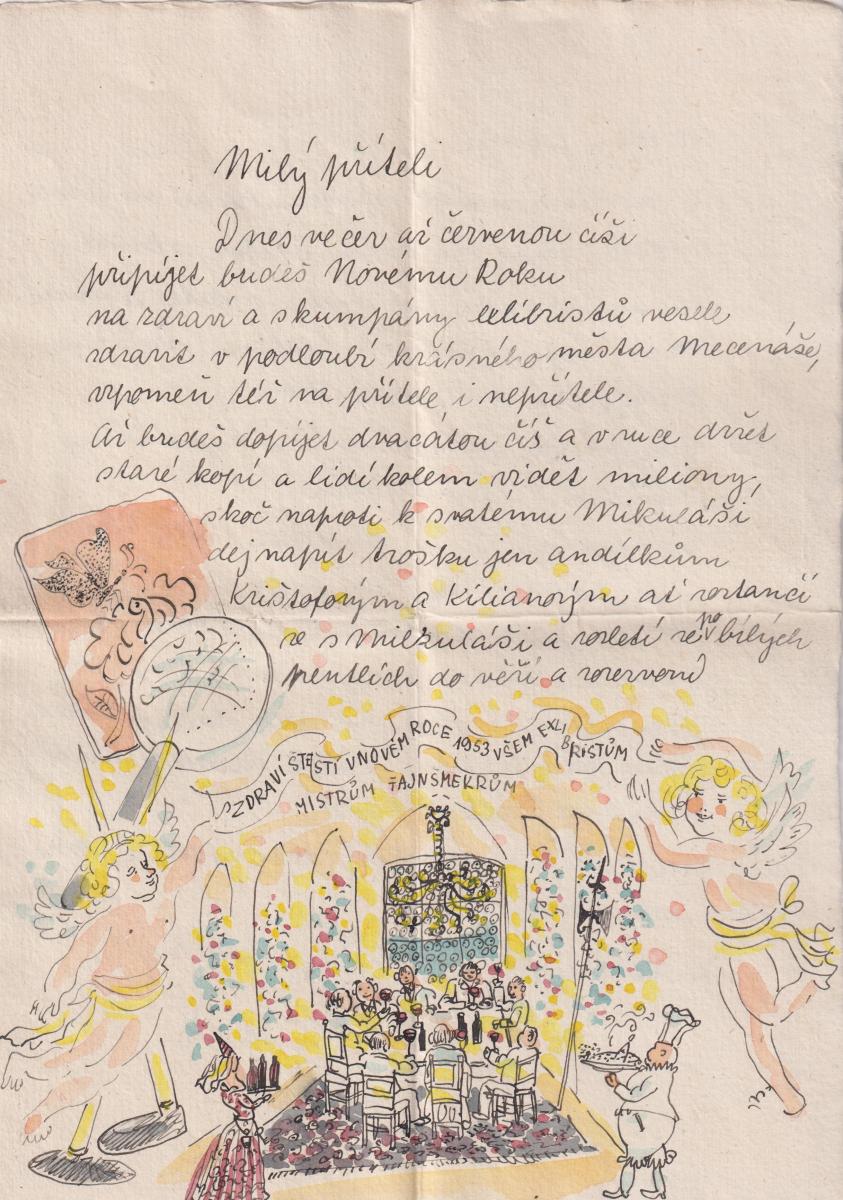 Milý příteli
Dnes večer až červenou číši
připíjet budeš Novému Roku
na zdraví a s kumpány exlibristů vesele
zdravit v podloubí krásného města Mecenáše,
vzpomeň též na přítele i nepřítele.
Až budeš dopíjet dvacátou číš a v ruce držet
staré kopí a lidí kolem vidět miliony,
skoč naproti k svatému Mikuláši
dej napít trošku jen andílkům
Krištofovým a Kilianovým ať roztančí
se s Mikuláši a vzletí po bílých
pentlích do věží a rozezvoní
ZDRAVÍ ŠTĚSTÍ V NOVÉM ROCE 1953 VŠEM EXLIBRISTŮM
MISTRŮM FAJNŠMEKRŮM